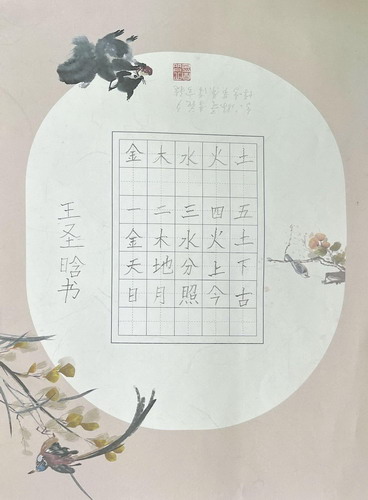 金木水火土
一二三四五
金木水火土
天地分上下
日月照今古
王圣晗书